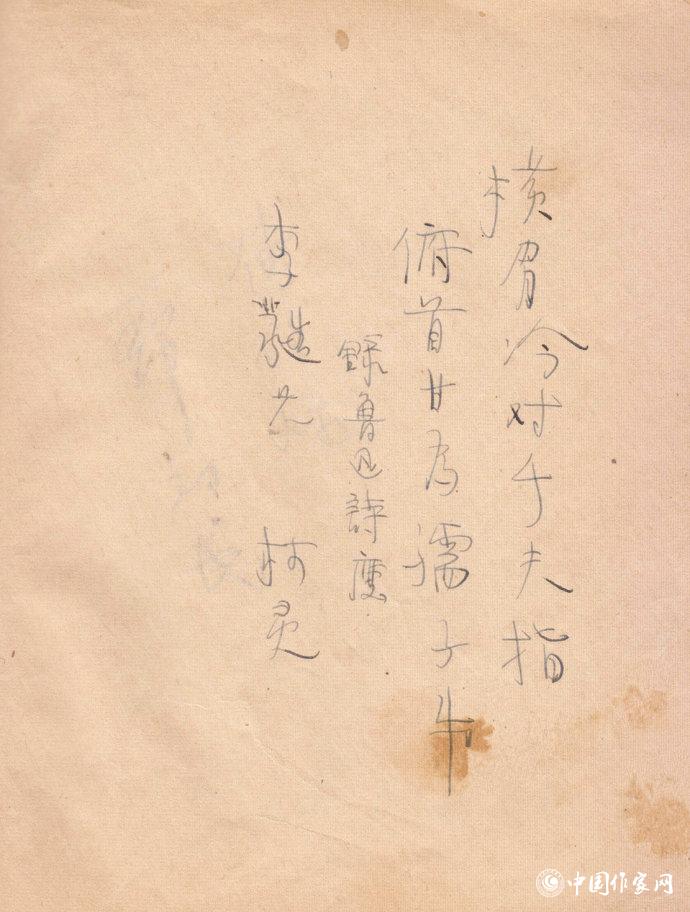 横眉冷对千夫指
俯首甘为孺子牛
録魯迅詩應
李蕤兄 柯灵
中国作家网